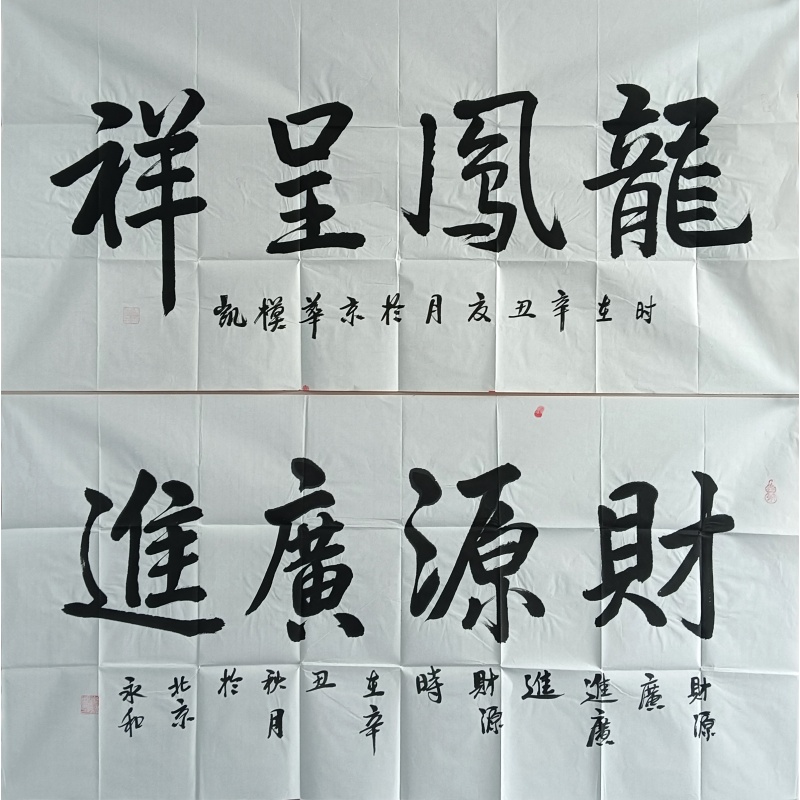 龍鳳呈祥
时在辛丑夏月於京華模凱
財源廣進
財源廣進廣進財源時在辛丑秋月於北京永和